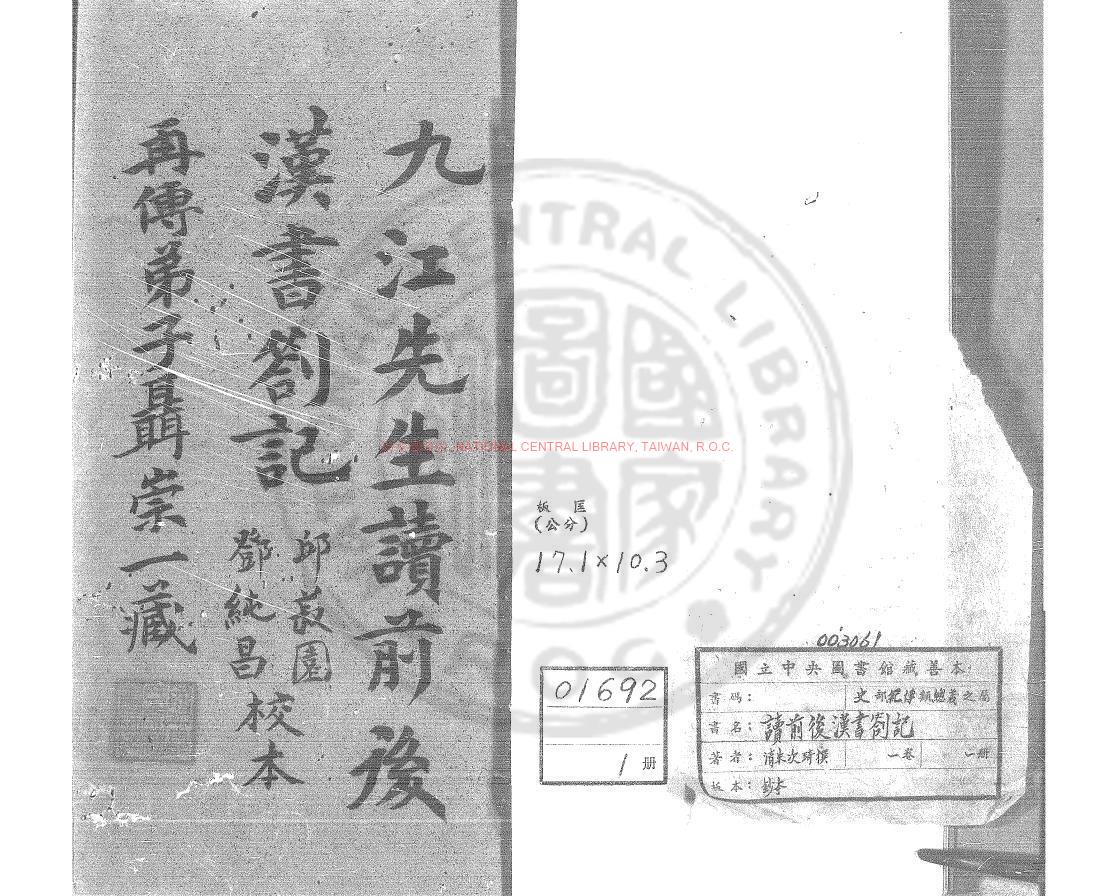 九江先生讀前後
漢書劄記
邱菽園
鄧純昌
校本
再傳弟子聶崇一藏
板匡
(公分)
17.1×10.3
01692
1 册
003061
國立中央圖書館藏善本
書碼：
史部紀傳類總義之屬
書名：讀前後漢書劄記
著者：清朱次琦撰 一卷 一册
板本：鈔本
NATIONAL CENTRAL LIBRARY, TAIWAN, R.O.C.
CENTRAL LIBRARY